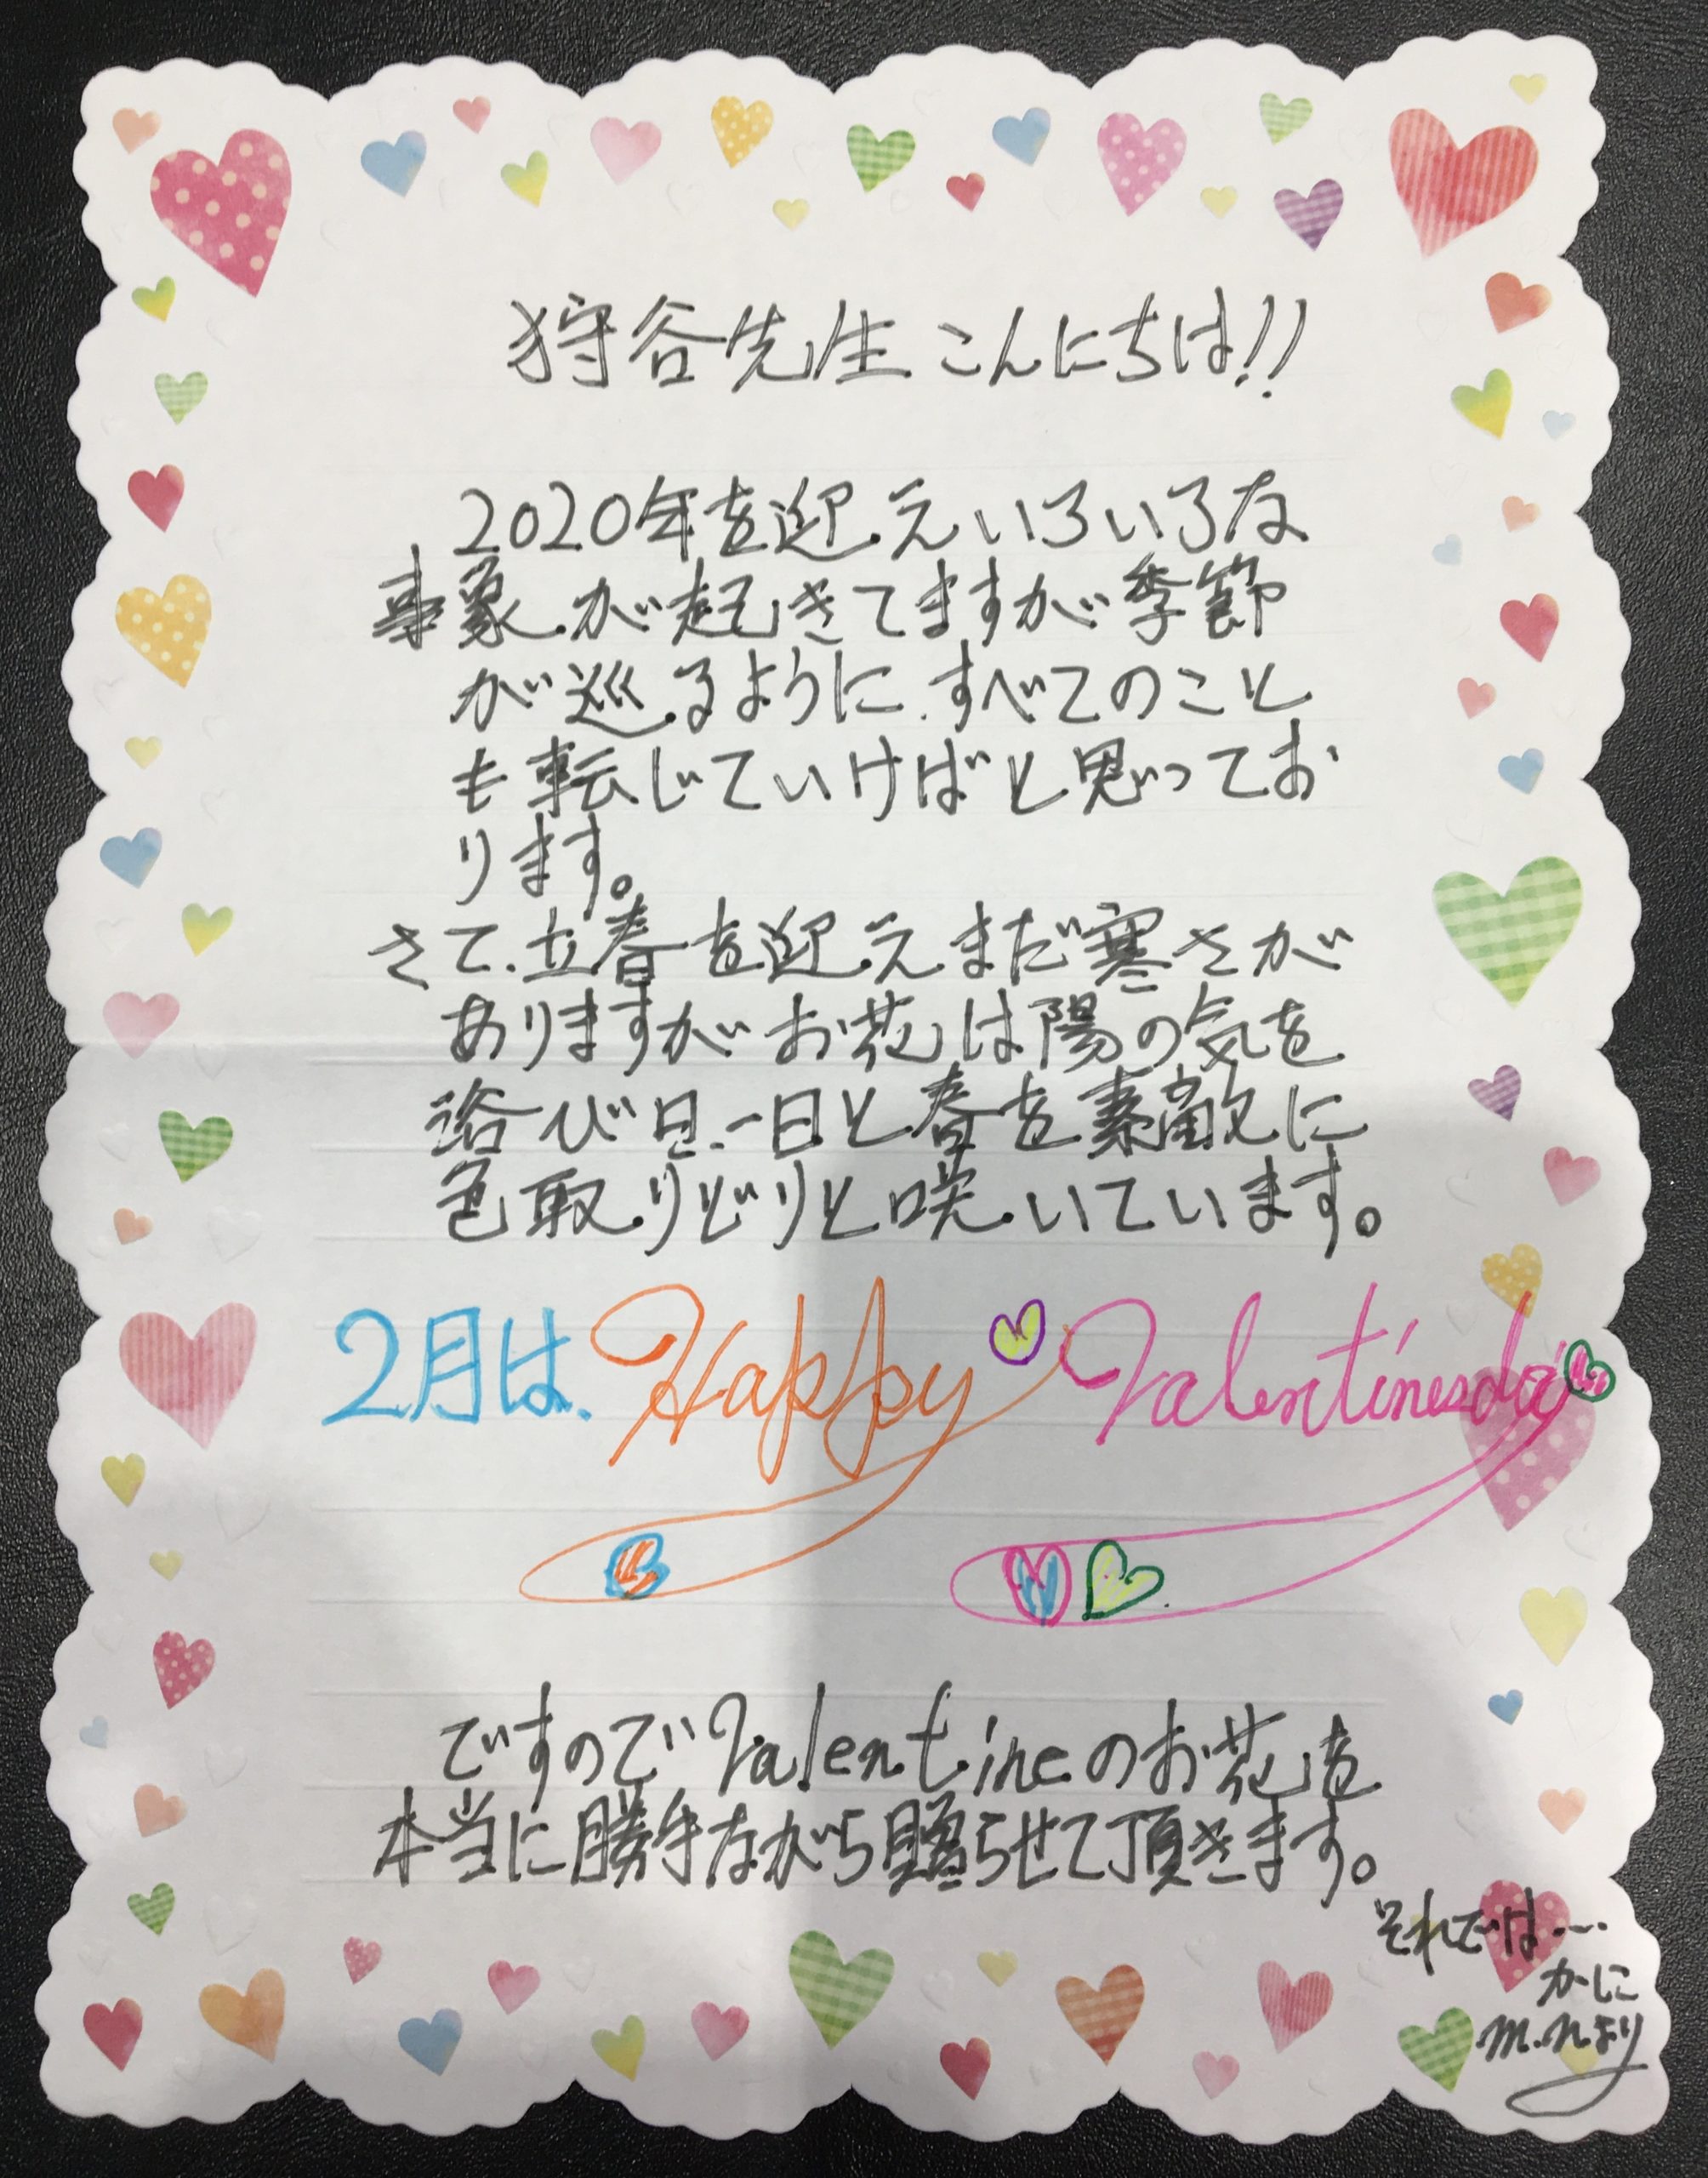 狩谷先生 こんにちは!!
2020年を迎えいろいろな
事象が起きてますが季節
が巡るように すべてのこと
も転じていけばと思ってお
ります。
さて、立春を迎えまだ寒さが
ありますがお花は陽の気を
浴び日一日と春を素敵に
色取りどりと咲いています。
2月は Happy Valentinesda
ですので Valentineのお花を
本当に勝手ながら贈らせて頂きます。
それでは…
かに
m.nより